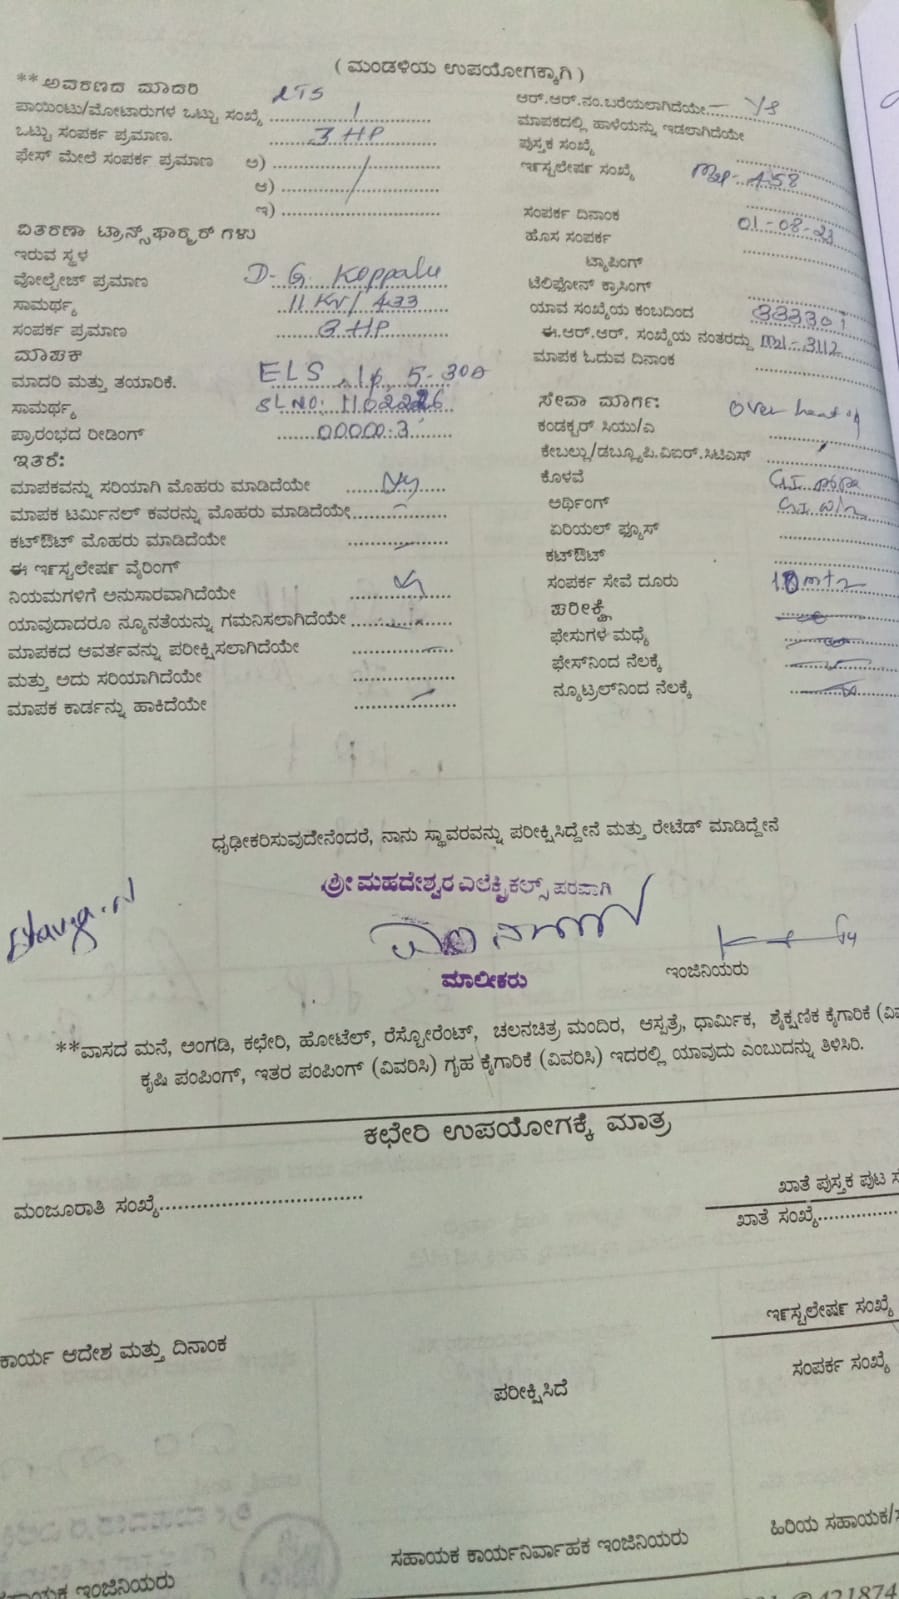 ( ಮಂಡಳಿಯ ಉಪಯೋಗಕ್ಕಾಗಿ )
** ಆವರಣದ ಮಾದರಿ LTS
ಪಾಯಿಂಟು/ಮೋಟಾರುಗಳ ಒಟ್ಟು ಸಂಖ್ಯೆ 1
ಒಟ್ಟು ಸಂಪರ್ಕ ಪ್ರಮಾಣ. 3 HP
ಫೇಸ್ ಮೇಲೆ ಸಂಪರ್ಕ ಪ್ರಮಾಣ ಅ)
ಆ)
ಇ)
ವಿತರಣಾ ಟ್ರಾನ್ಸ್‌ಫಾರ್‍ಮರ್ ಗಳು
ಇರುವ ಸ್ಥಳ D. G. Koppalu
ವೋಲ್ಟೇಜ್ ಪ್ರಮಾಣ 11 KV/433
ಸಾಮರ್ಥ್ಯ
ಸಂಪರ್ಕ ಪ್ರಮಾಣ 3 HP
ಮಾಪಕ
ಮಾದರಿ ಮತ್ತು ತಯಾರಿಕೆ. ELS 5-30A
ಸಾಮರ್ಥ್ಯ SL NO:
ಪ್ರಾರಂಭದ ರೀಡಿಂಗ್ 00000.3
ಇತರೆ:
ಮಾಪಕವನ್ನು ಸರಿಯಾಗಿ ಮೊಹರು ಮಾಡಿದೆಯೇ
ಮಾಪಕ ಟರ್ಮಿನಲ್ ಕವರನ್ನು ಮೊಹರು ಮಾಡಿದೆಯೇ
ಕಟ್‌ಔಟ್ ಮೊಹರು ಮಾಡಿದೆಯೇ
ಈ ಇನ್ಸ್ಟಲೇಷನ್ ವೈರಿಂಗ್
ನಿಯಮಗಳಿಗೆ ಅನುಸಾರವಾಗಿದೆಯೇ
ಯಾವುದಾದರೂ ನ್ಯೂನತೆಯನ್ನು ಗಮನಿಸಲಾಗಿದೆಯೇ
ಮಾಪಕದ ಆವರ್ತವನ್ನು ಪರೀಕ್ಷಿಸಲಾಗಿದೆಯೇ
ಮತ್ತು ಅದು ಸರಿಯಾಗಿದೆಯೇ
ಮಾಪಕ ಕಾರ್ಡನ್ನು ಹಾಕಿದೆಯೇ
ಆರ್.ಆರ್.ನಂ.ಬರೆಯಲಾಗಿದೆಯೇ
ಮಾಪಕದಲ್ಲಿ ಹಾಳೆಯನ್ನು ಇಡಲಾಗಿದೆಯೇ
ಪುಸ್ತಕ ಸಂಖ್ಯೆ
ಇನ್ಸ್ಟಲೇಷನ ಸಂಖ್ಯೆ
ಸಂಪರ್ಕ ದಿನಾಂಕ 01-08-23
ಹೊಸ ಸಂಪರ್ಕ
ಟ್ಯಾಪಿಂಗ್
ಟೆಲಿಫೋನ್ ಕ್ರಾಸಿಂಗ್
ಯಾವ ಸಂಖ್ಯೆಯ ಕಂಬದಿಂದ
ಈ.ಆರ್.ಆರ್. ಸಂಖ್ಯೆಯ ನಂತರದ್ದು
ಮಾಪಕ ಓದುವ ದಿನಾಂಕ
ಸೇವಾ ಮಾರ್ಗ: Over
ಕಂಡಕ್ಟರ್ ಸಿಯು/ಎ
ಕೇಬಲ್ಲು/ಡಬ್ಲ್ಯೂ.ಪಿ.ವಿಐಆರ್.ಸಿಟಿಎಸ್
ಕೊಳವೆ G.I. pipe
ಅರ್ಥಿಂಗ್
ಏರಿಯಲ್ ಫ್ಯೂಸ್
ಕಟ್‌ಔಟ್
ಸಂಪರ್ಕ ಸೇವೆ ದೂರು 10 mtr
ಪರೀಕ್ಷೆ
ಫೇಸುಗಳ ಮಧ್ಯೆ
ಫೇಸ್‌ನಿಂದ ನೆಲಕ್ಕೆ
ನ್ಯೂಟ್ರಲ್‌ನಿಂದ ನೆಲಕ್ಕೆ
ಧೃಢೀಕರಿಸುವುದೇನೆಂದರೆ, ನಾನು ಸ್ಥಾವರವನ್ನು ಪರೀಕ್ಷಿಸಿದ್ದೇನೆ ಮತ್ತು ರೇಟೆಡ್ ಮಾಡಿದ್ದೇನೆ
ಶ್ರೀ ಮಹದೇಶ್ವರ ಎಲೆಕ್ಟ್ರಿಕಲ್ಸ್ ಪರವಾಗಿ
ಮಾಲೀಕರು
ಇಂಜಿನಿಯರು
**ವಾಸದ ಮನೆ, ಅಂಗಡಿ, ಕಛೇರಿ, ಹೋಟೆಲ್, ರೆಸ್ಟೋರೆಂಟ್, ಚಲನಚಿತ್ರ ಮಂದಿರ, ಆಸ್ಪತ್ರೆ, ಧಾರ್ಮಿಕ, ಶೈಕ್ಷಣಿಕ ಕೈಗಾರಿಕೆ
ಕೃಷಿ ಪಂಪಿಂಗ್, ಇತರ ಪಂಪಿಂಗ್ (ವಿವರಿಸಿ) ಗೃಹ ಕೈಗಾರಿಕೆ (ವಿವರಿಸಿ) ಇದರಲ್ಲಿ ಯಾವುದು ಎಂಬುದನ್ನು ತಿಳಿಸಿರಿ.
ಕಛೇರಿ ಉಪಯೋಗಕ್ಕೆ ಮಾತ್ರ
ಮಂಜೂರಾತಿ ಸಂಖ್ಯೆ
ಖಾತೆ ಪುಸ್ತಕ ಪುಟ
ಖಾತೆ ಸಂಖ್ಯೆ
ಇನ್ಸ್ಟಲೇಷನ್ ಸಂಖ್ಯೆ
ಕಾರ್ಯ ಆದೇಶ ಮತ್ತು ದಿನಾಂಕ
ಪರೀಕ್ಷಿಸಿದೆ
ಸಂಪರ್ಕ ಸಂಖ್ಯೆ
ಸಹಾಯಕ ಕಾರ್ಯನಿರ್ವಾಹಕ ಇಂಜಿನಿಯರು
ಹಿರಿಯ ಸಹಾಯಕ/
ಇಂಜಿನಿಯರು